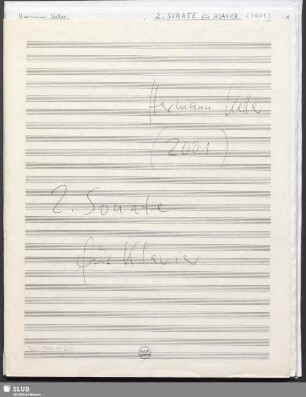 Hermann Keller 2. SONATE für KLAVIER (2001)
Hermann Keller
(2001)
2. Sonate
für Klavier
SLUB
Wir führen Wissen.